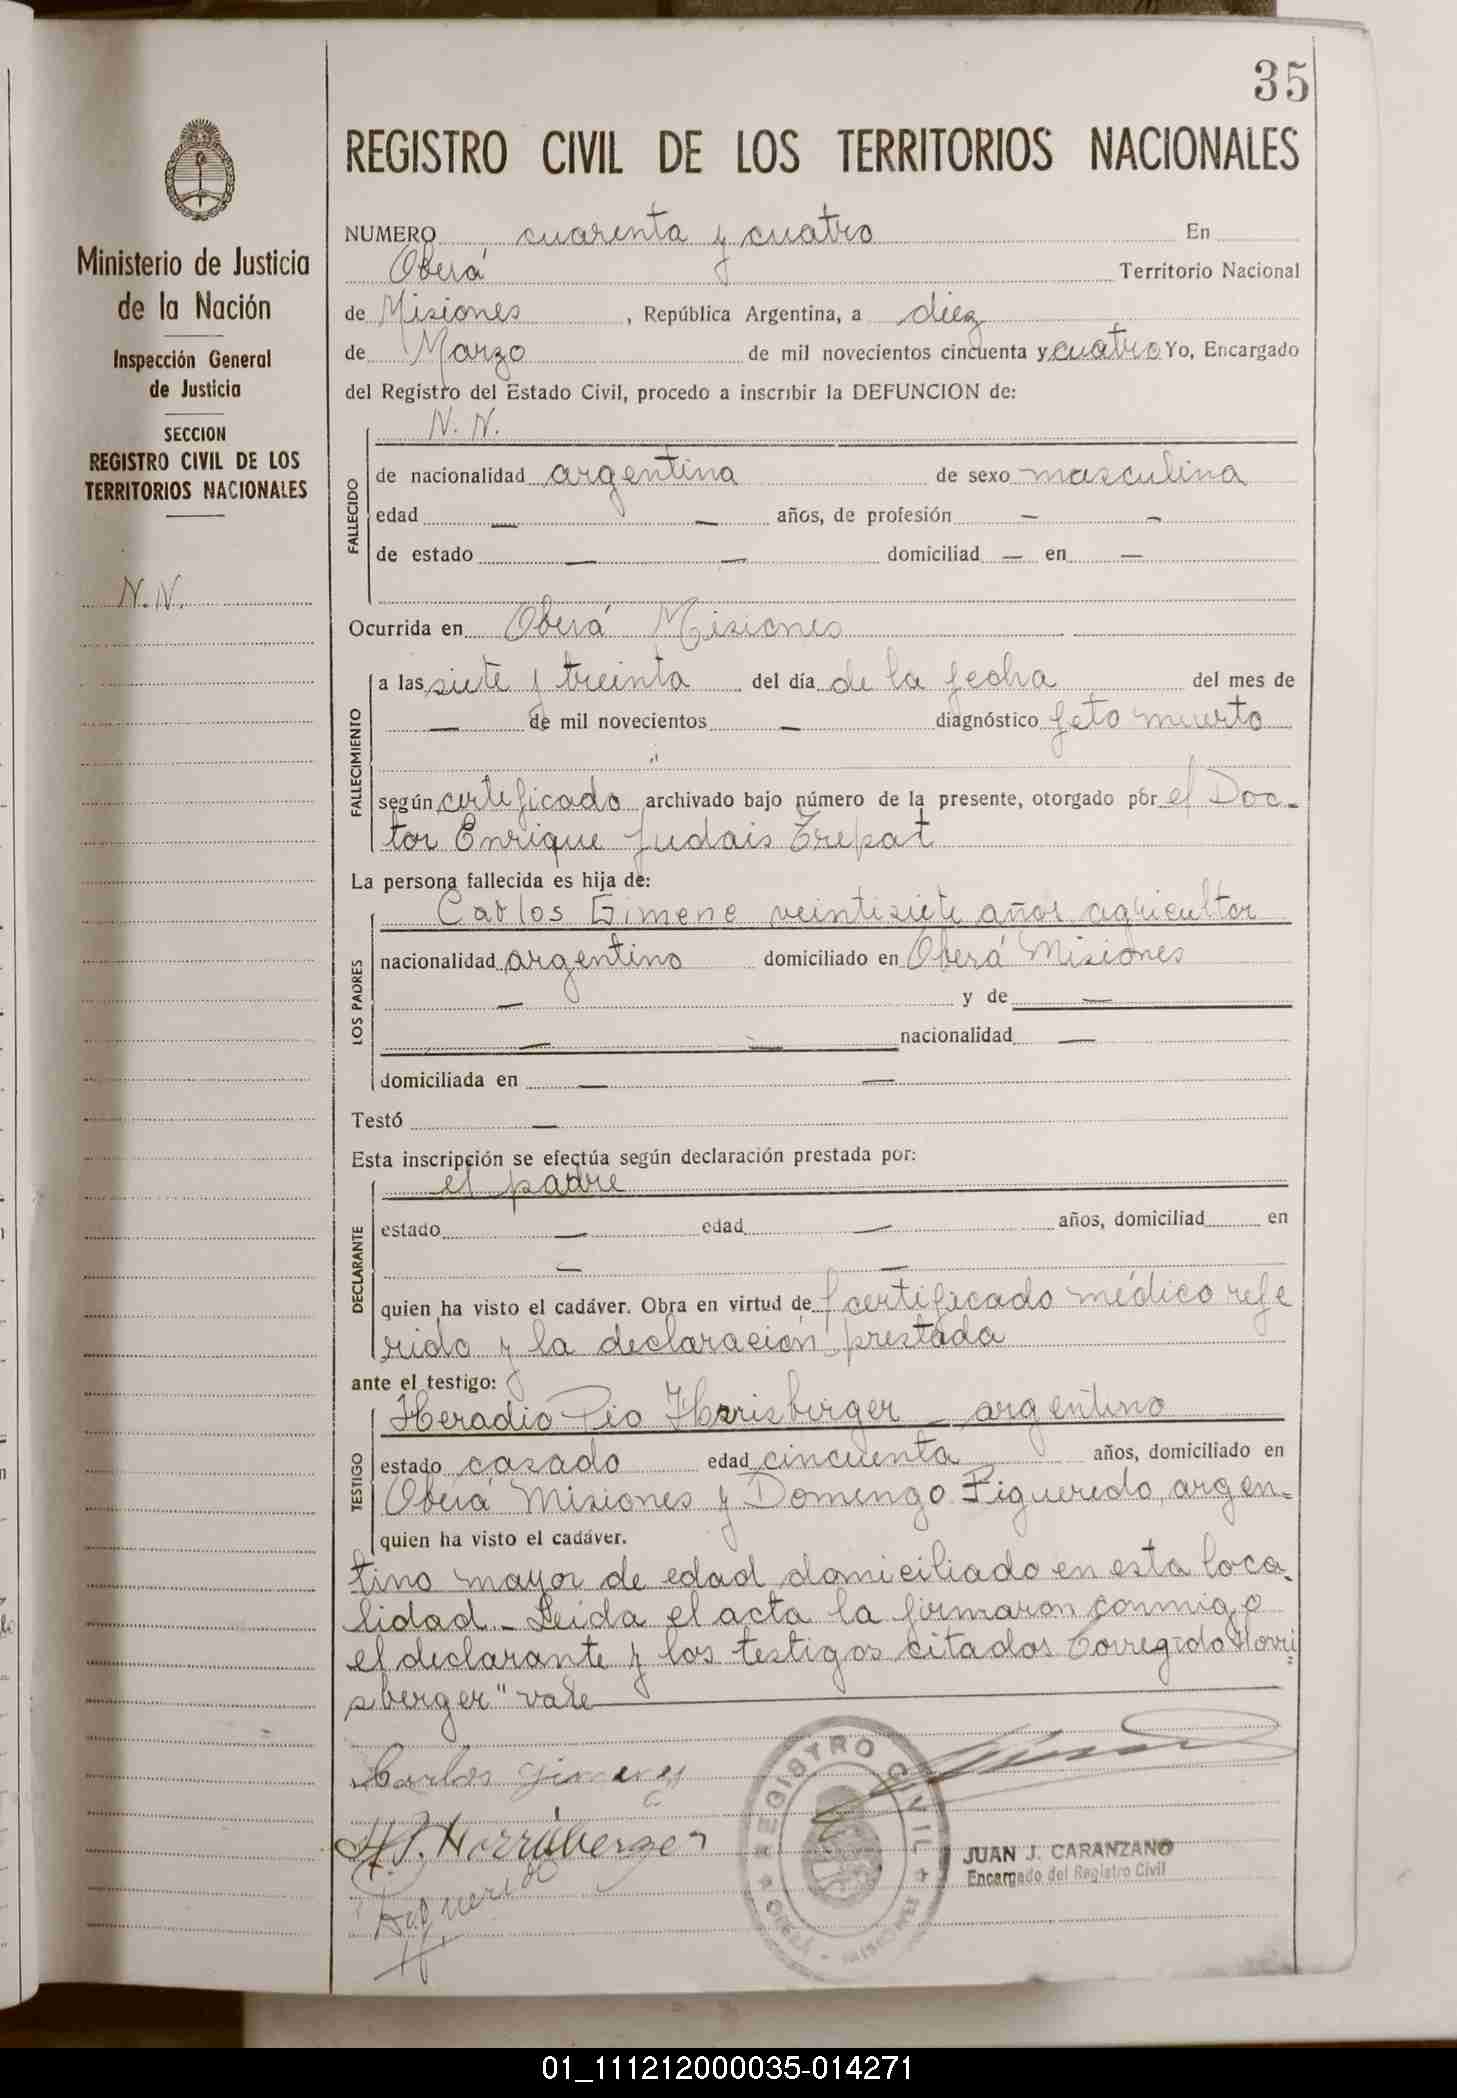 35
REGISTRO CIVIL DE LOS TERRITORIOS NACIONALES
Ministerio de Justicia
de la Nación
Inspección General
de Justicia
SECCION
REGISTRO CIVIL DE LOS
TERRITORIOS NACIONALES
N.N.
NUMERO cuarenta y cuatro En
Oberá Territorio Nacional
de Misiones, República Argentina, a diez
de Marzo de mil novecientos cincuenta y cuatro Yo, Encargado
del Registro del Estado Civil, procedo a inscribir la DEFUNCION de:
N. N.
FALLECIDO
de nacionalidad argentina de sexo masculina
edad — — años, de profesión — —
de estado — — domiciliad — en —
Ocurrida en Oberá Misiones
FALLECIMIENTO
a las siete y treinta del día de la fecha del mes de
— de mil novecientos — diagnóstico feto muerto
"
según certificado archivado bajo número de la presente, otorgado por el Doc-
tor Enrique Judais Trepat
La persona fallecida es hija de:
LOS PADRES
Carlos Gimene veintisiete años agricultor
nacionalidad argentino domiciliado en Oberá Misiones
— y de —
— — nacionalidad —
domiciliada en — —
Testó —
Esta inscripción se efectúa según declaración prestada por:
DECLARANTE
el padre
estado — edad — años, domiciliad en
— —
quien ha visto el cadáver. Obra en virtud de certificado médico refe
rido y la declaración prestada
ante el testigo:
TESTIGO
Heradio Pio Horrisberger - argentino
estado casado edad cincuenta años, domiciliado en
Oberá Misiones y Domingo Figueredo, argen-
quien ha visto el cadáver.
tino mayor de edad domiciliado en esta loca-
lidad - Leida el acta la firmaron conmigo
el declarante y los testigos citados Corregido "Horri
sberger" vale
Carlos Gimenez
H.P. Horrisberger
REGISTRO CIVIL
OBERA - MISIONES
JUAN J. CARANZANO
Encargado del Registro Civil
01_111212000035-014271